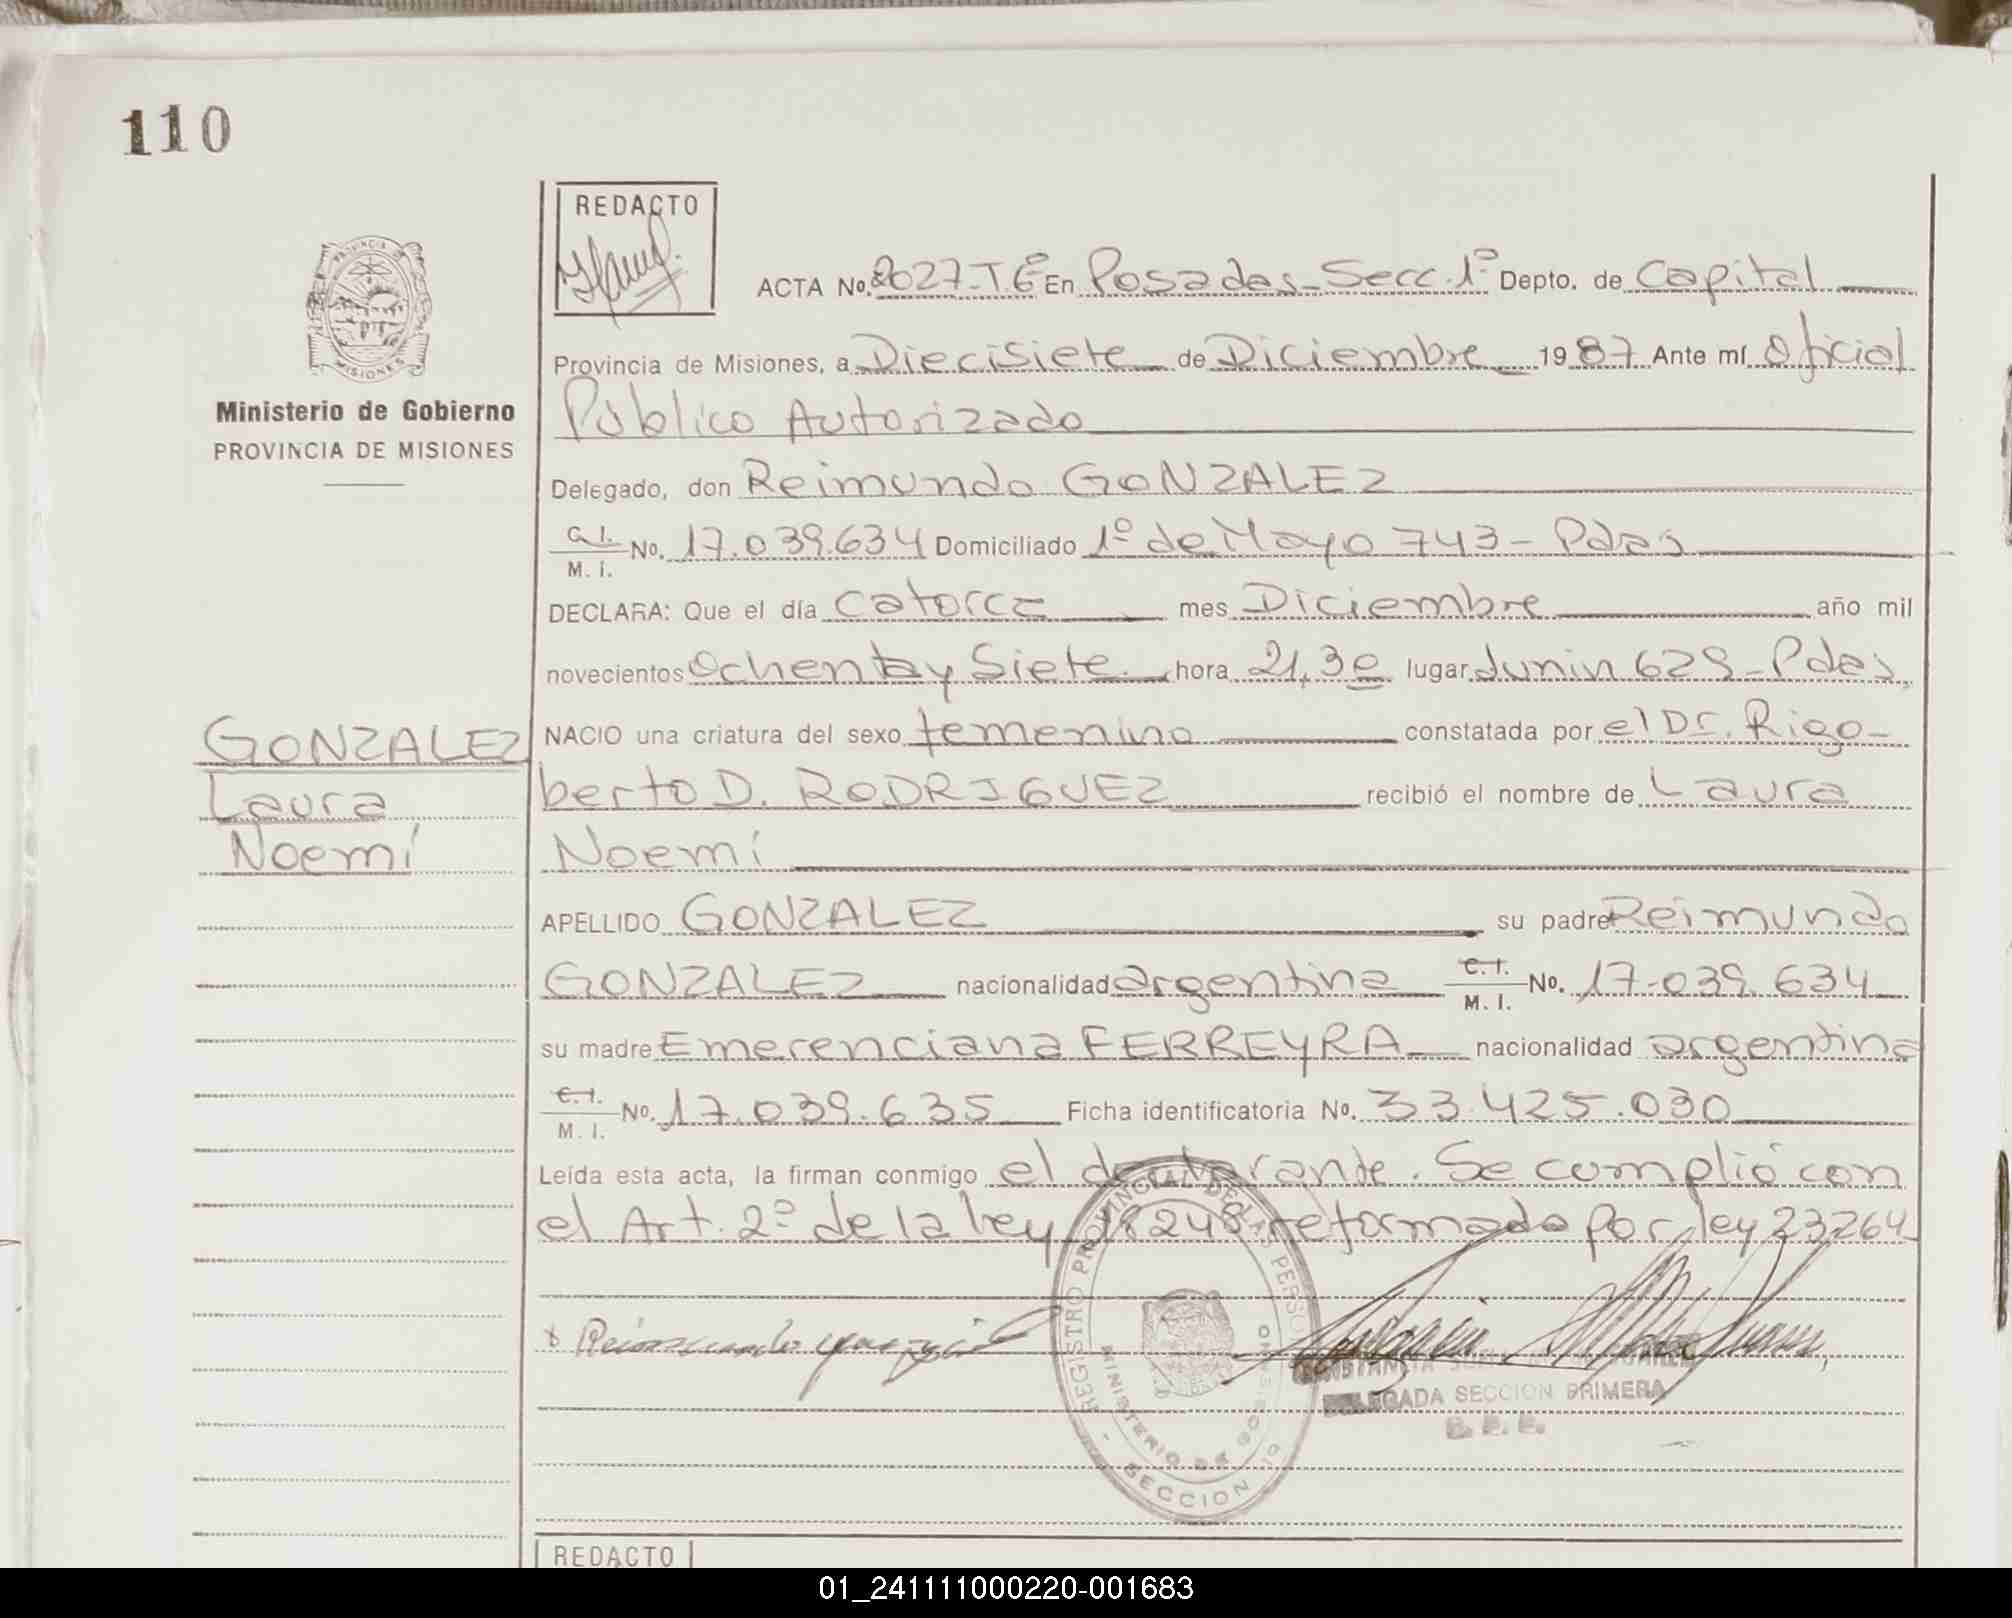 110
REDACTO
ACTA No. 2027-Tº 6º En Posadas - Secc. 1º Depto. de Capital
Provincia de Misiones, a Diecisiete de Diciembre 1987 Ante mí Oficial
Público Autorizado
Ministerio de Gobierno
PROVINCIA DE MISIONES
Delegado, don Reimundo GONZALEZ
C.I. No. 17.039.634 Domiciliado 1º de Mayo 743 - Pdas
M. I.
DECLARA: Que el día catorce mes Diciembre año mil
novecientos Ochenta y Siete hora 21,30 lugar Junin 629 - Pdas,
NACIO una criatura del sexo femenino constatada por el Dr. Rigo-
berto D. RODRIGUEZ recibió el nombre de Laura
Noemí
GONZALEZ
Laura
Noemí
APELLIDO GONZALEZ su padre Reimundo
GONZALEZ nacionalidad argentina C.I. No. 17.039.634
M. I.
su madre Emerenciana FERREYRA nacionalidad argentina
C.I. No. 17.039.635 Ficha identificatoria No. 33.425.030
M. I.
Leída esta acta, la firman conmigo el declarante. Se cumplió con
el Art. 2º de la ley 18248 reformado por ley 23264
Reimundo gonzalez
REGISTRO PROVINCIAL DE LAS PERSONAS
MINISTERIO DE GOBIERNO
SECCION 1º
DELEGADA SECCION PRIMERA
REDACTO
01_241111000220-001683